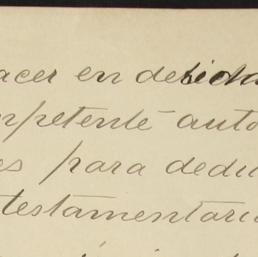 acer en debida
mpetente auto
es para dedu
testamentari